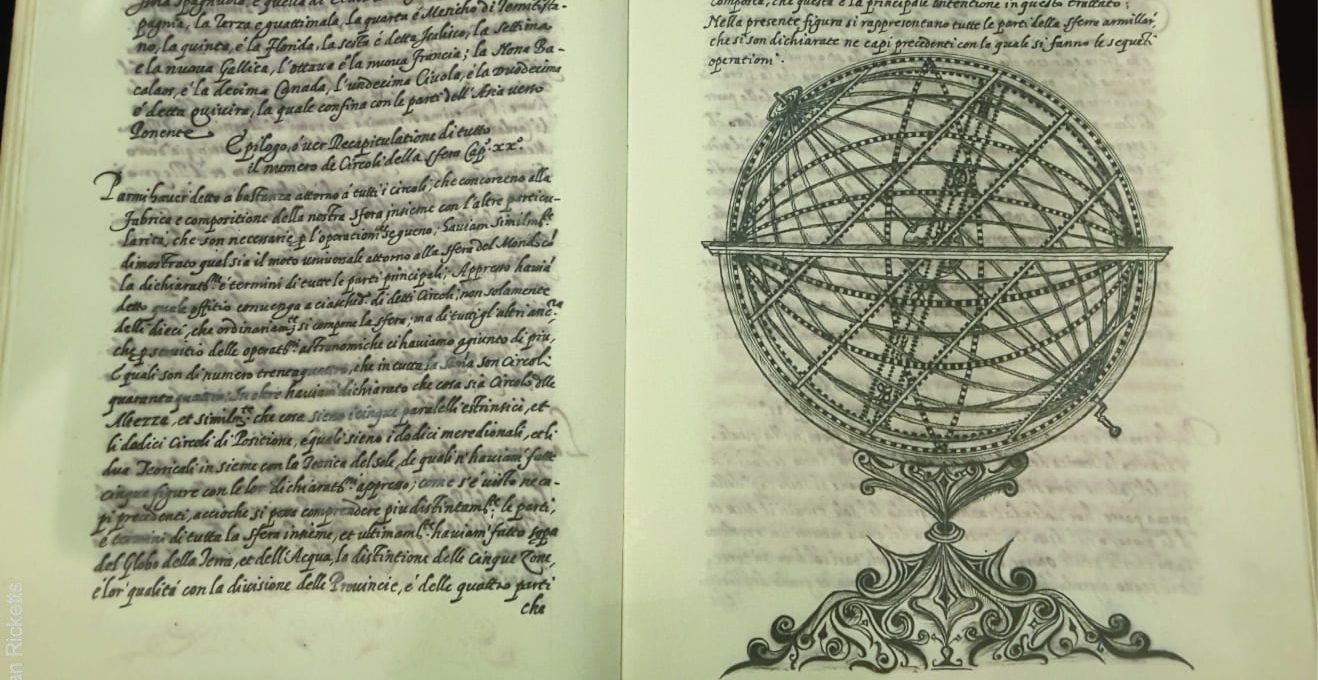 pagnia, la Terza e quattimala, la quarta é Mesicho di Temistita-
no, la quinta, e la Florida, la sesta é detta Icalico, la settima
e la nuova Gallita, l'ottava é la nuova francia; la Nona Ba-
calaos, e la decima Canada, l'undecima Civola, e la duodecima
é detta quivira, la quale confina con le parti dell'Asia verso
Ponente
Epilogo, ó ver Recapitulatione di tutto
il numero de Circoli della sfera Cap.º xx.º
Parmi haver detto a bastanza attorno a tutti i circoli, che concoreno alla
fabrica e compositione della nostra sfera insieme con l'altre particu-
larita, che son necenarie p l'operationi segueno; haviam similm.te
dimostrato qual sia il moto universale attorno alla sfera del Mondo
la dichiarat.ne é termini di tutte le parti principali; Appreno haviã
detto quale offitio convenga a ciaschũ di detti Circoli; non solamente
delli dieci, che ordinariam.te si compone la sfera; ma di tutti gl'altri anc.ra
che p servitio delle operat.ni astronomiche ci haviamo agiunto di piu,
E quali son di numero trentaquattro, che in tutta la son Circoli
quarantaquattro: In oltre haviam dichiarato che cosa sia Circolo delle
Altezza, et similm.te che cosa sieno i cinque paralelli estrintici, et
li dodici Circoli di Positione, e quali sieno i dodici meredionali, et li
dua Teoricali in sieme con la Teorica del sole, de quali n'haviam fatte
cinque figure con le lor dichiarat.ni appreno; come s'e visto ne ca-
pi precedenti, accioche si pona comprendere piu distintam.te le parti,
e termini di tutta la sfera insieme, et ultimam.te haviam fatto sopa
del Globo della Terra, et dell'Acqua, la distintione delle cinque Zone,
e lor qualitá con la divisione delle Provincie, é delle quattro parti
che
comporta, che questa é la principale intentione in questo trattato;
Nella presente figura si rappresentano tutte le parti della sfera armillar
che si son dichiarate ne capi precedenti con la quale si fanno le sequeti
operationi.
an Ricketts